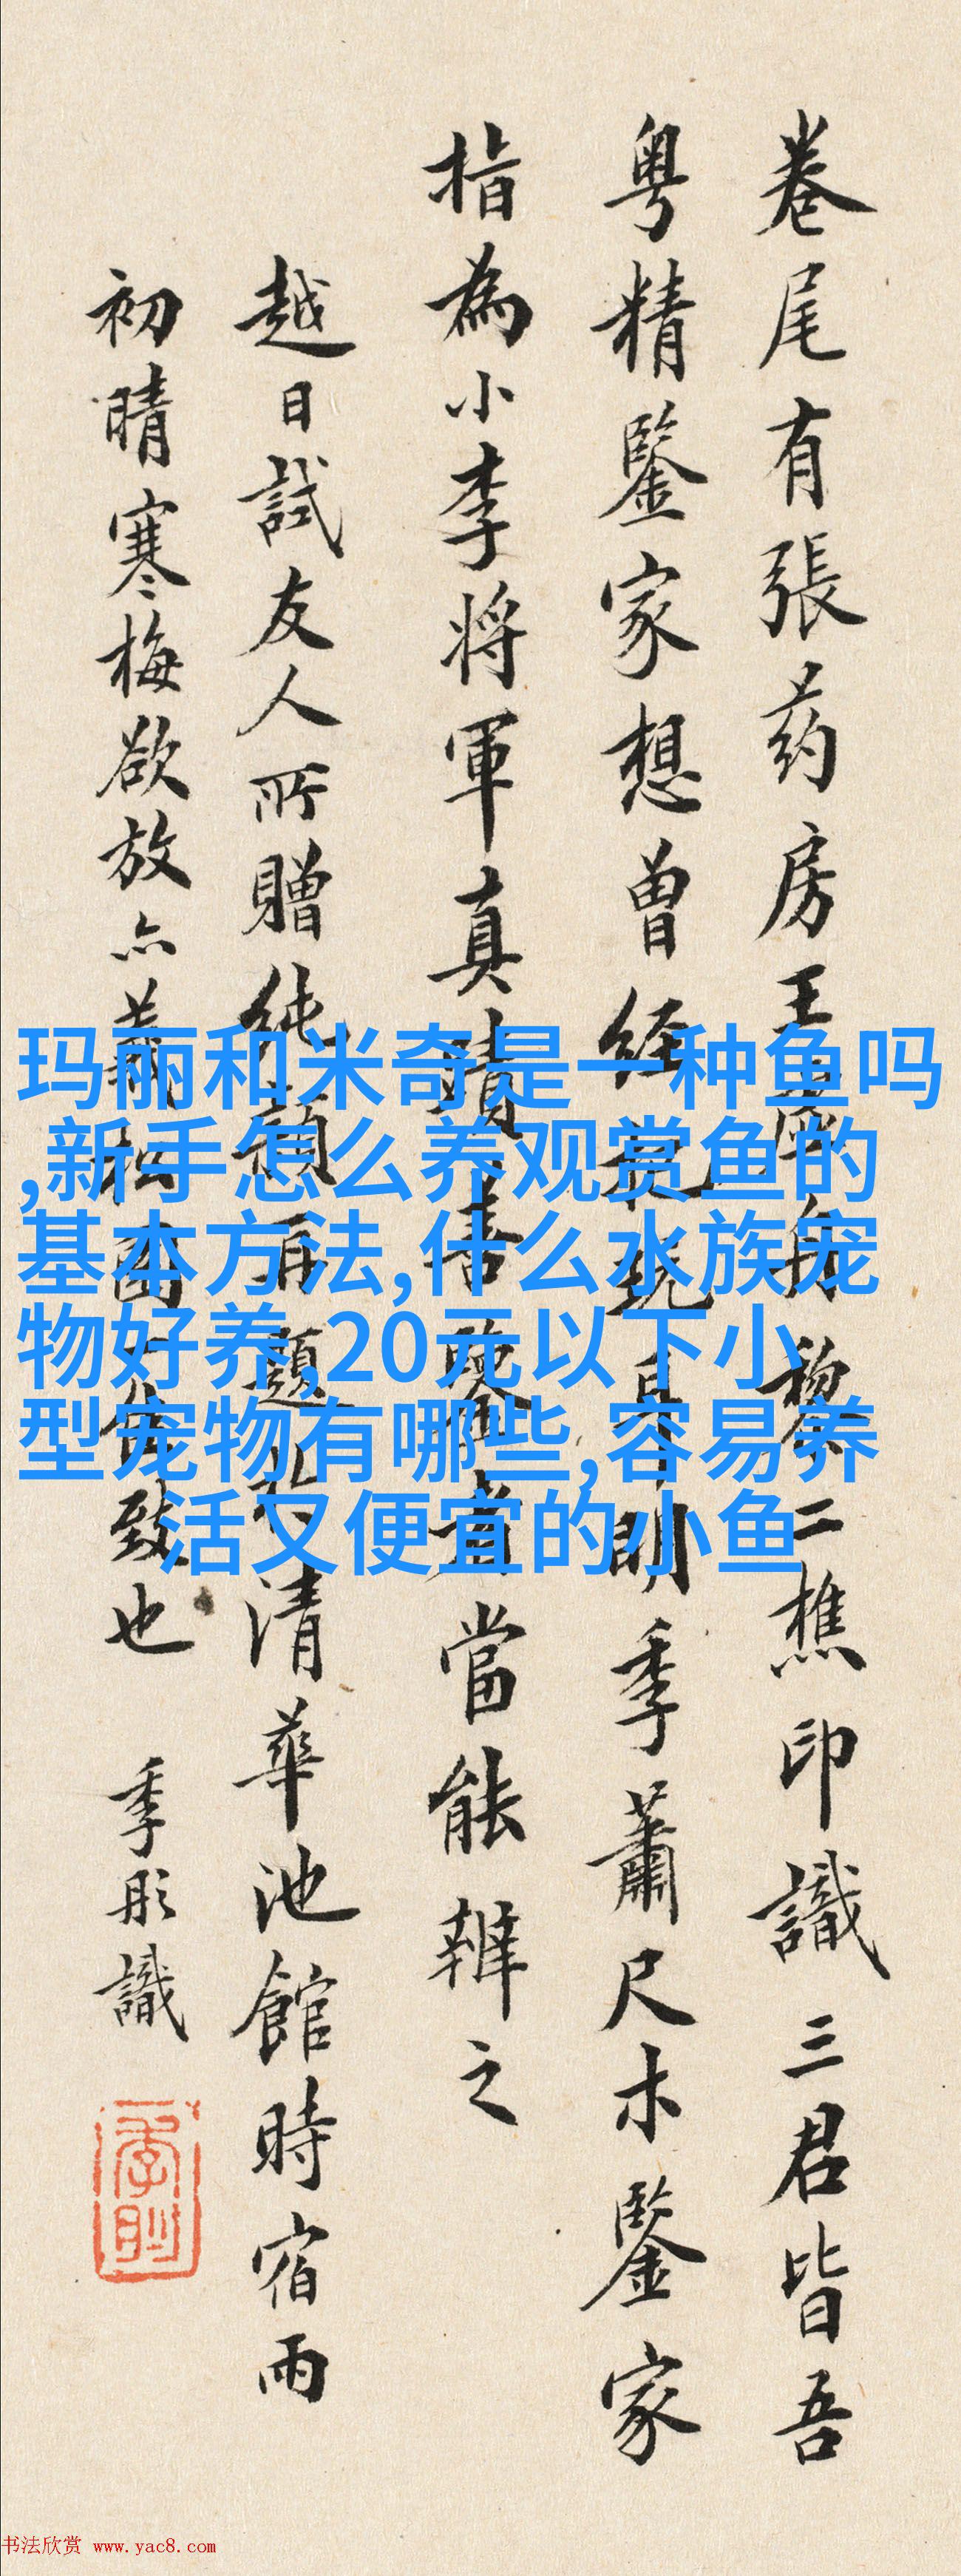 卷尾有張药房王舟黎二樵印識三君皆吾
粤精鑒家想曾經覽且明季蕭尺木鑒家
指為小李将軍真蹟善鑒者當能辨之
越日試友人所贈純頴再題于清華池館時宿雨
初晴寒梅欲放亦佳致也 季彤識
玛丽和米奇是一种鱼吗
,新手怎么养观赏鱼的
基本方法,什么水族宠
物好养,20元以下小
型宠物有哪些,容易养
活又便宜的小鱼
书法欣赏 www.yac8.com